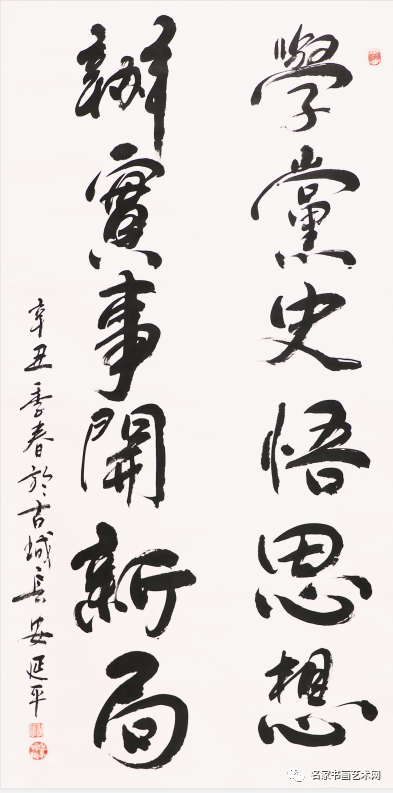 學黨史悟思想
辦實事開新局
辛丑季春於古城長安延平
名家书画艺术网